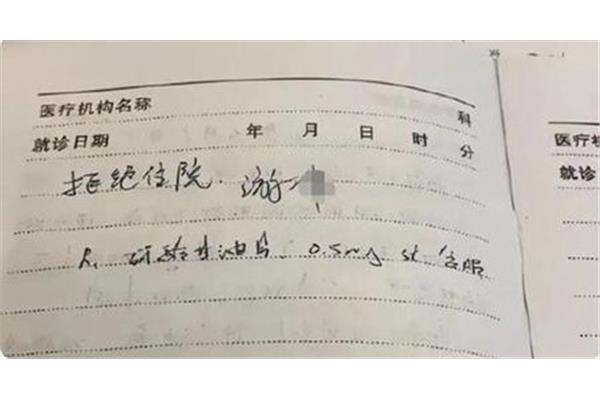 科
医疗机构名称 科
就诊日期 年 月 日 时 分
拒绝住院. 游
R. 硝酸甘油片 0.5mg st 含服
医疗机
就诊